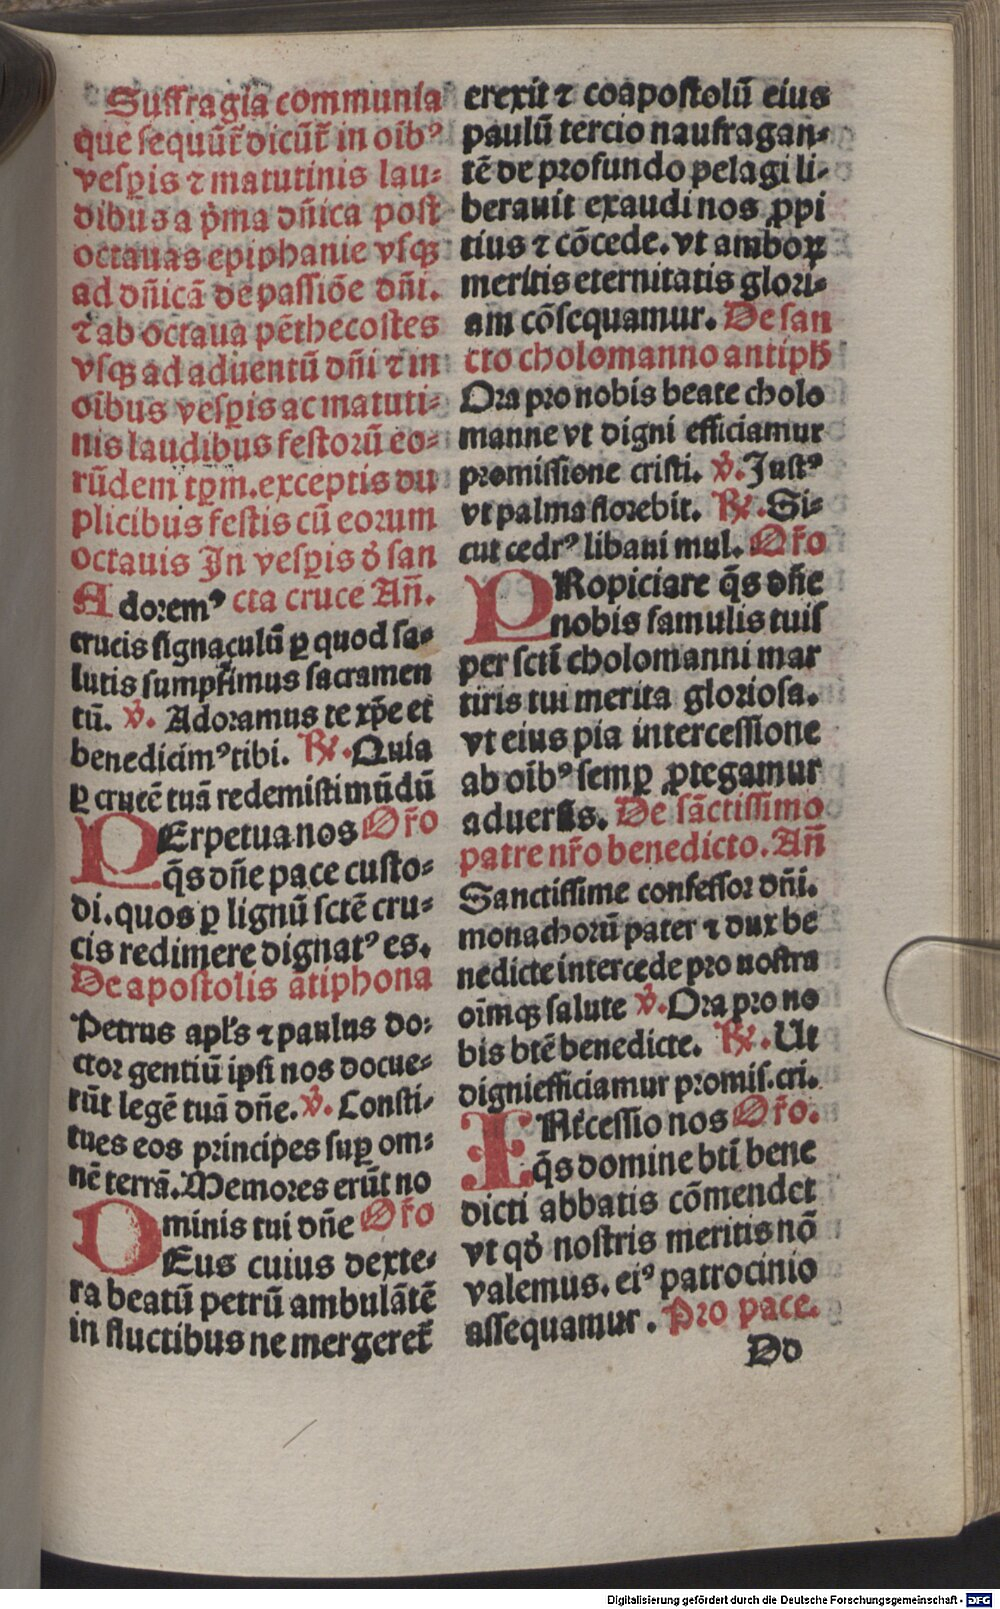 Suffragia communia
que sequūt̄ dicūt̄ in oīb⁹
vesꝑis ⁊ matutinis lau⸗
dibus a pͥma dn̄ica post
octauas epiphanie vsqꝫ
ad dn̄icā de passiōe dn̄i.
⁊ ab octaua pēthecostes
vsqꝫ ad aduentū dn̄i ⁊ in
oībus vesꝑis ac matuti⸗
nis laudibus festorū eo⸗
rūdem tꝑm. exceptis du
plicibus festis cū eorum
octauis In vesꝑis đ san
Adorem⁹ cta cruce An̄.
crucis signaculū ꝑ quod sa⸗
lutis sumpsimus sacramen
tū. ℣. Adoramus te xp̄e et
benedicim⁹ tibi. ℟. Quia
ꝑ crucē tuā redemisti mūdū
PErpetua nos Or̄o
q̄s dn̄e pace custo⸗
di. quos ꝑ lignū sctē cru⸗
cis redimere dignat⁹ es.
De apostolis ātiphona
Petrus apl's ⁊ paulus do⸗
ctor gentiū ipsi nos docue⸗
rūt legē tuā dn̄e. ℣. Consti⸗
tues eos principes suꝑ om⸗
nē terrā. Memores erūt no
minis tui dn̄e Or̄o
DEus cuius dexte⸗
ra beatū petrū ambulātē
in fluctibus ne mergeret̄
erexit ⁊ coapostolū eius
paulū tercio naufragan⸗
tē de profundo pelagi li⸗
berauit exaudi nos ꝓpi
tius ⁊ cōcede. vt amboꝝ
meritis eternitatis glori⸗
am cōsequamur. De san
cto cholomanno antiph̄
Ora pro nobis beate cholo
manne vt digni efficiamur
promissione cristi. ℣. Just⁹
vt palma florebit. ℟. Si⸗
cut cedr⁹ libani mul. Or̄o
PRopiciare q̄s dn̄e
nobis famulis tuis
per scti cholomanni mar
tiris tui merita gloriosa.
vt eius pia intercessione
ab oīb⁹ semꝑ ꝓtegamur
aduersis. De sāctissimo
patre nr̄o benedicto. An̄
Sanctissime confessor dn̄i.
monachorū pater ⁊ dux be
nedicte intercede pro nostra
oīmqꝫ salute ℣. Ora pro no
bis btē benedicte. ℟. Ut
digni efficiamur promis. cri.
INt̄cessio nos Or̄o.
q̄s domine bti bene
dicti abbatis cōmendet
vt qđ nostris meritis nō
valemus. ei⁹ patrocinio
assequamur. Pro pace.
Do
Digitalisierung gefördert durch die Deutsche Forschungsgemeinschaft - DFG